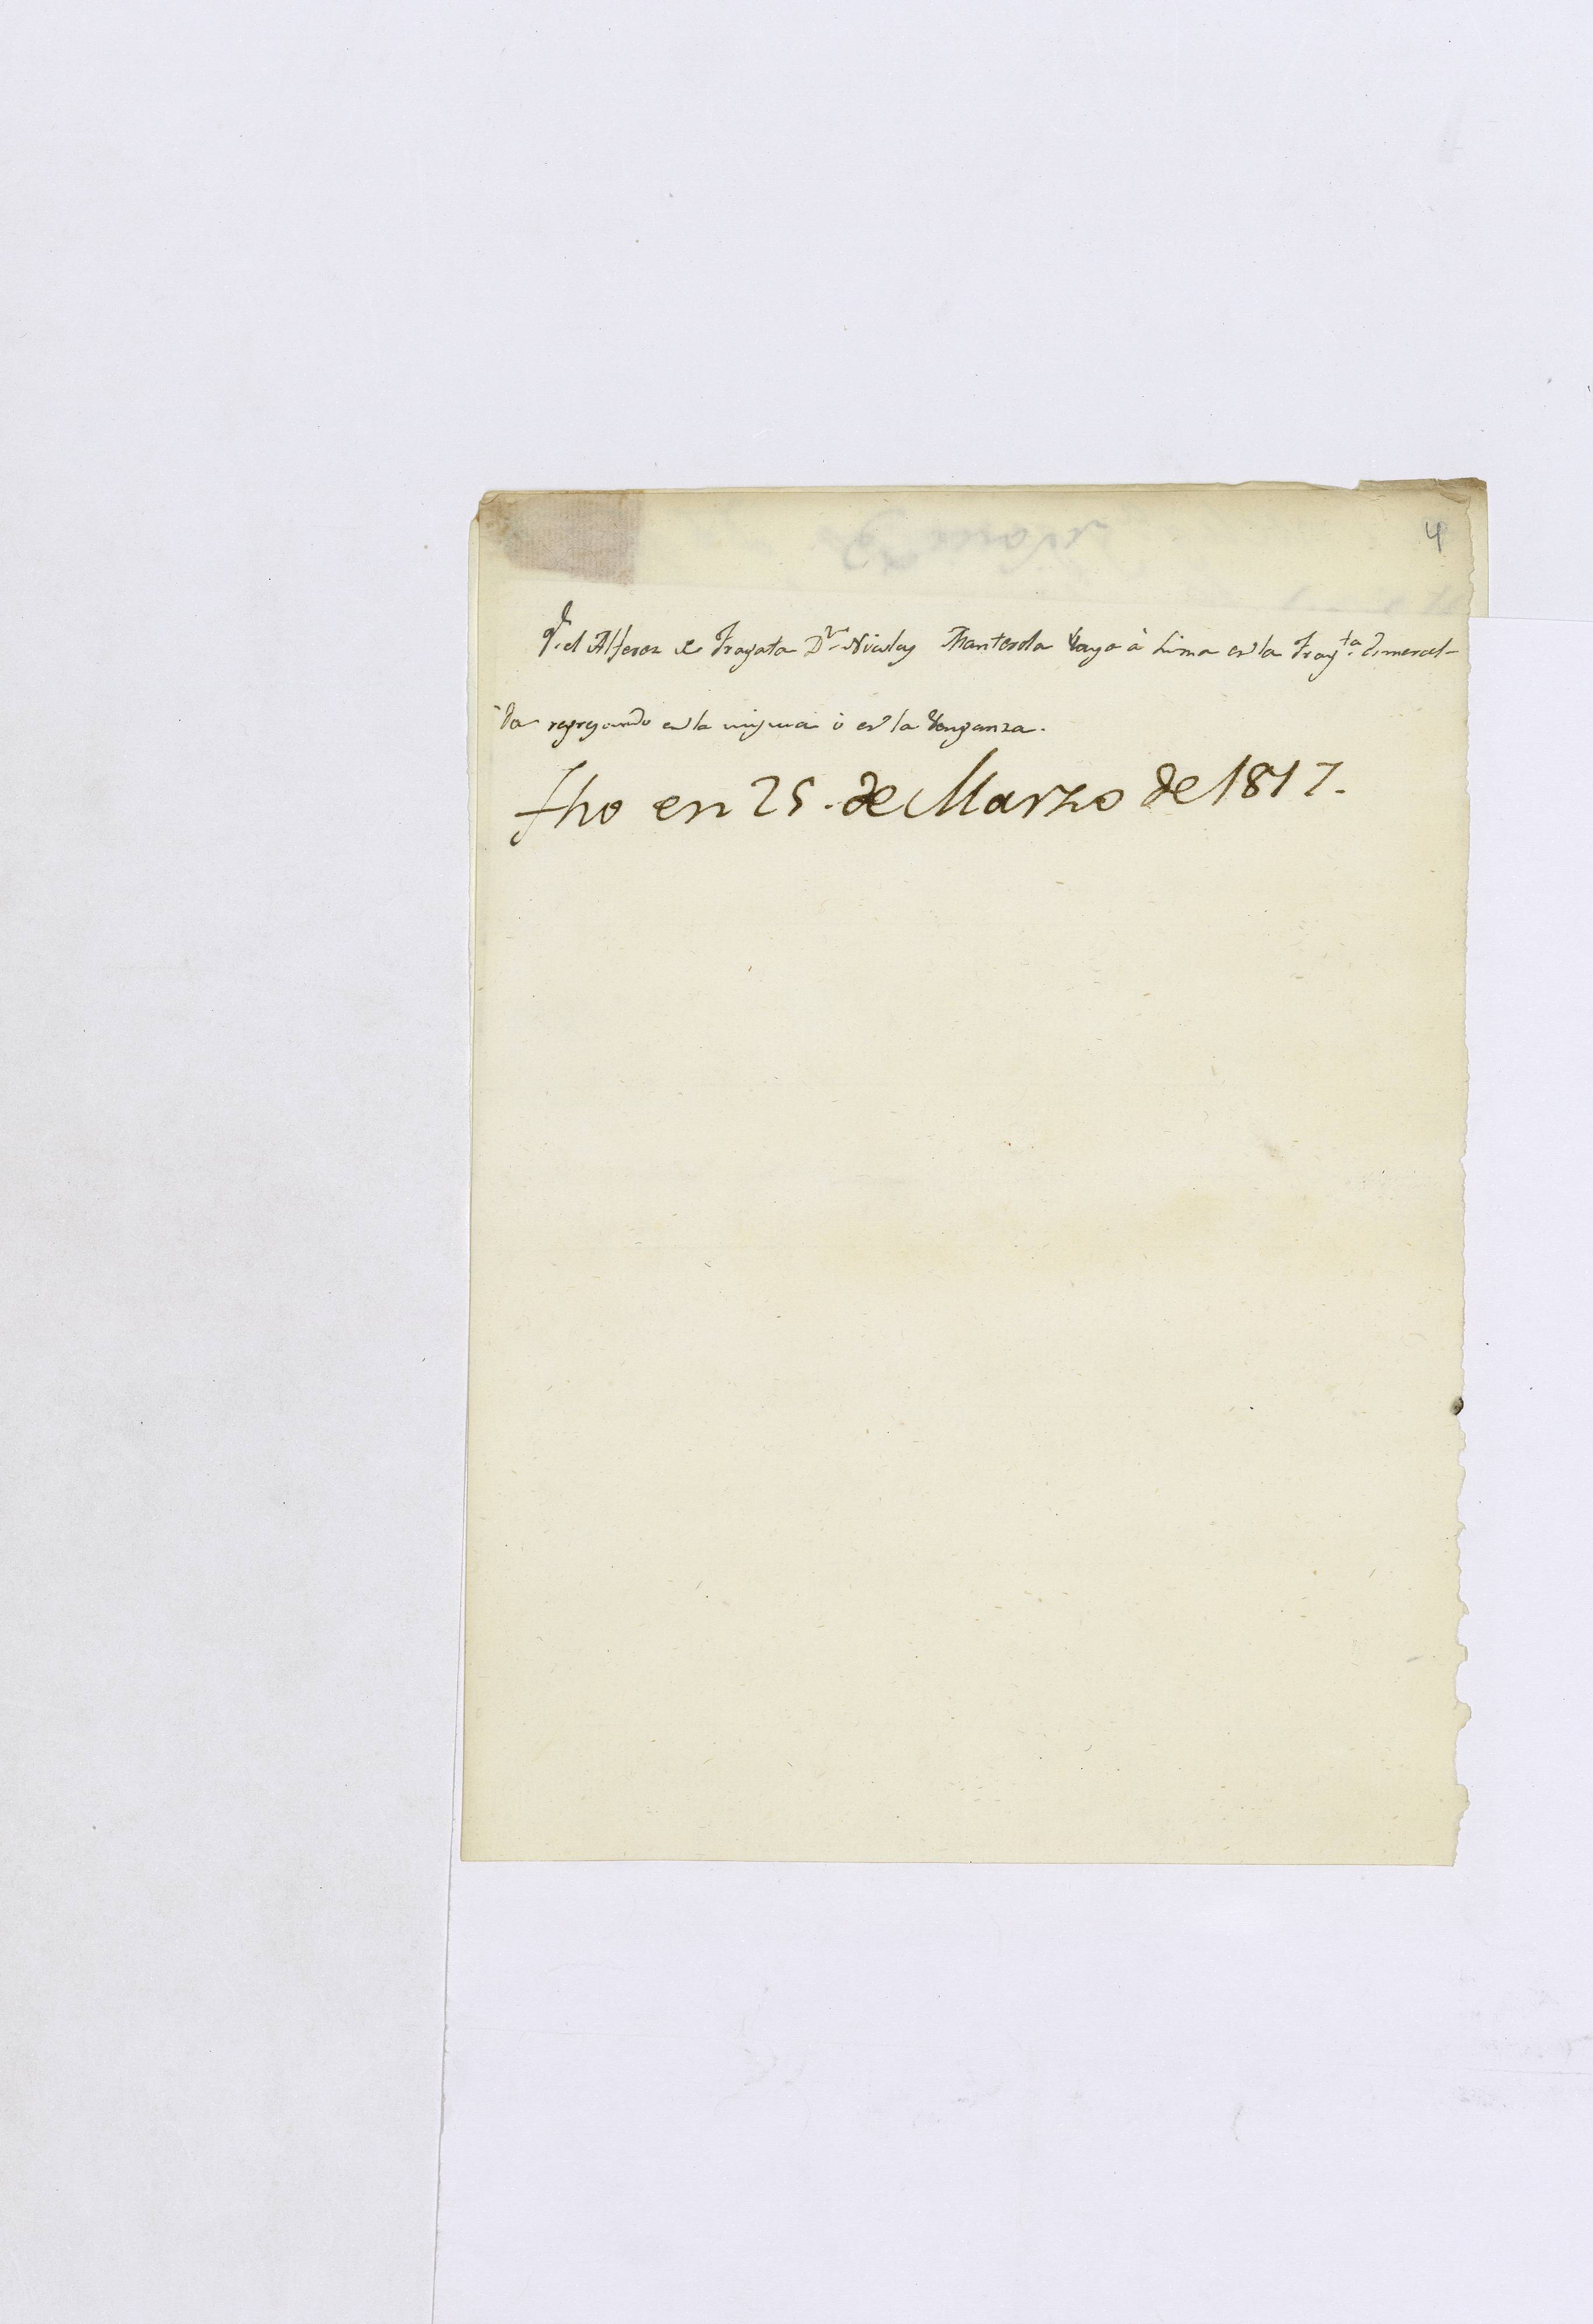 4
Q.e el Alferez de Fragata Dn Nicolas Manterola vaya à Lima en la Frag.ta Esmeral-
da regresando en la misma ò en la Venganza.
fho en 25. de Marzo de 1817.